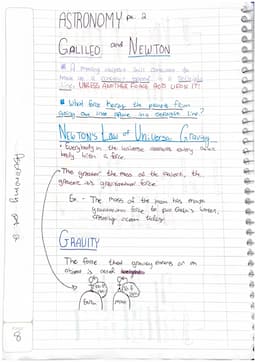 ASTRONOMY pt. 2
GALILEO and NEWTON
A moving object will continue to
move at a constant speed in a straight
line, UNLESS ANOTHER FORCE ACTS UPON IT!
What force keeps the planets from
going out into space in a straight line?
NEWTON'S LAW OF UNIVERSAL GRAVITY
Everybody in the universe attracts every other
body with a force.
The greater the mass of the objects, the
greater its gravitational force
Ex. - The mass of the moon has enough
gravitational force to pull Earth's water,
creating ocean tides!
GRAVITY
The force that gravity exerts on an
object is called
Earth
moon
8